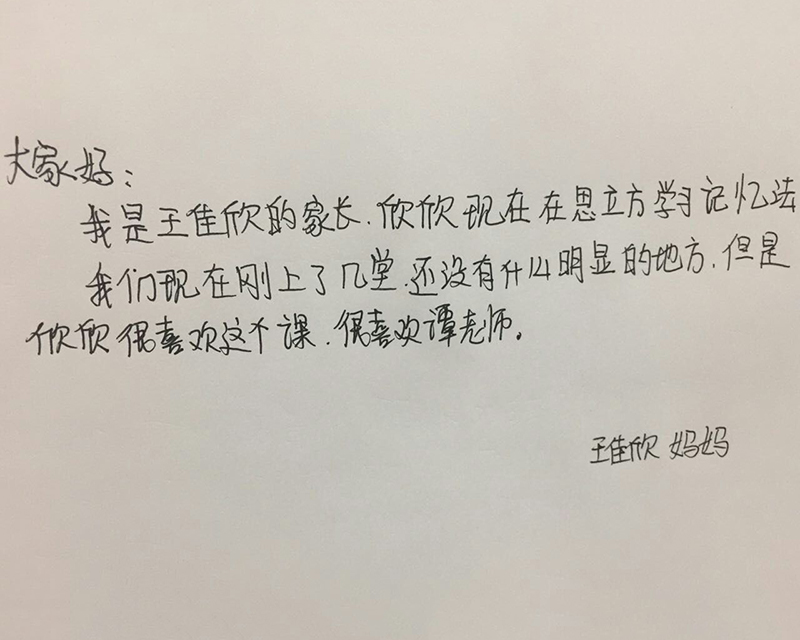 大家好：
我是王佳欣的家长.欣欣现在在思立方学习记忆法
我们现在刚上了几堂.还没有什么明显的地方.但是
欣欣很喜欢这个课.很喜欢谭老师。
王佳欣 妈妈